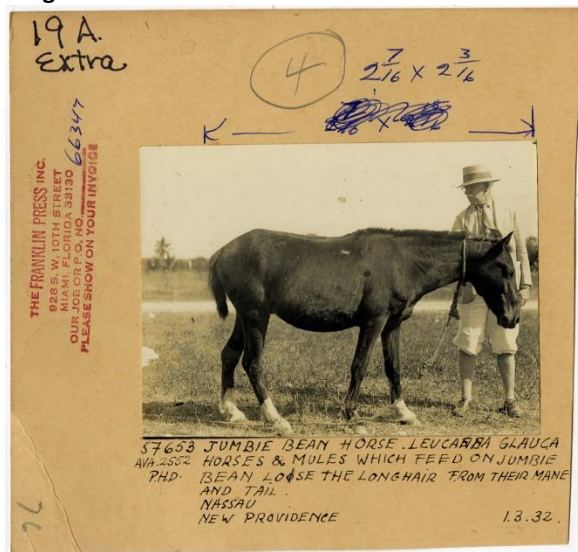 19 A.
Extra
4
2 7/16 x 2 3/16
THE FRANKLIN PRESS INC.
928 S. W. 10TH STREET
MIAMI, FLORIDA 33130
OUR JOB OR P.O. NO. 66347
PLEASE SHOW ON YOUR INVOICE
57653 JUMBIE BEAN HORSE. LEUCAENA GLAUCA
AVA.2552 HORSES & MULES WHICH FEED ON JUMBIE
P.H.D. BEAN LOOSE THE LONGHAIR FROM THEIR MANE
AND TAIL.
NASSAU
NEW PROVIDENCE 1.3.32.